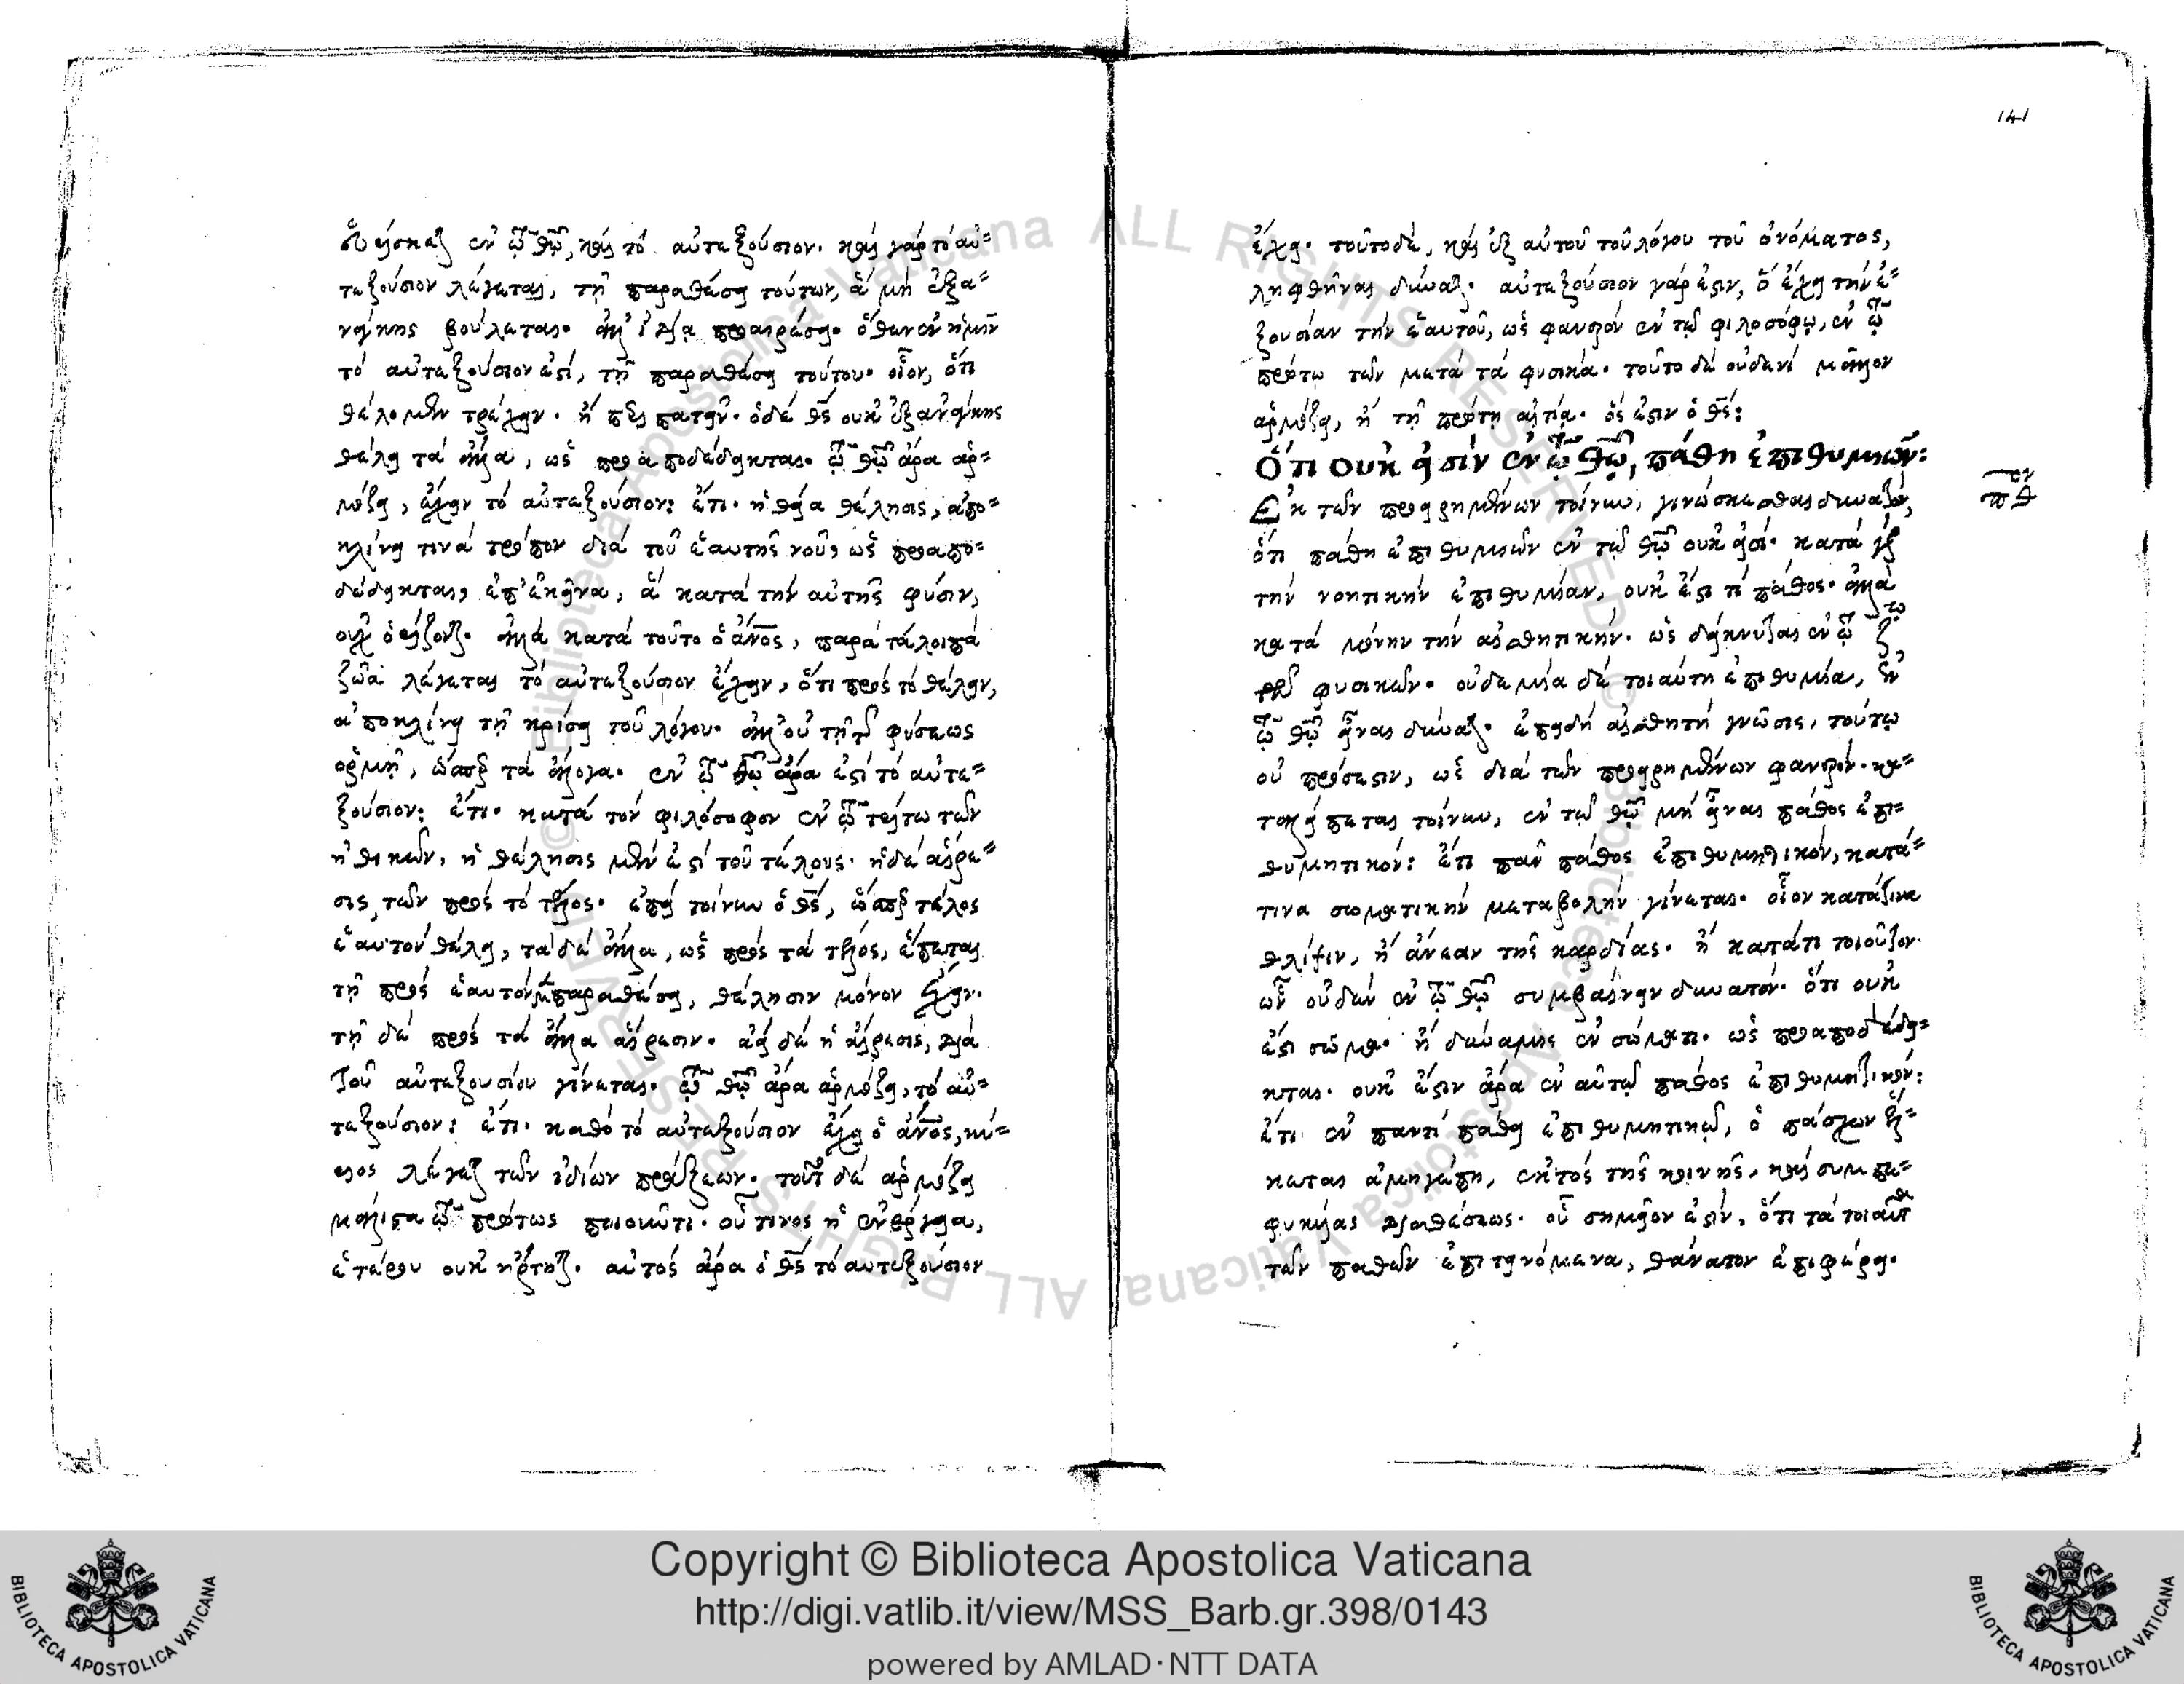 εὑρίσκεται ἐν τῷ θῷ, καὶ τὸ αὐτεξούσιον. καὶ γὰρ τὸ αὐ=
τεξούσιον λέγεται, τῇ παραθέσει τούτων, ἃ μὴ ἐξα=
νάγκης βούλεται. ἀλλ' ἰδίᾳ προαιρέσει. ὅθεν ἐν ἡμῖν
τὸ αὐτεξούσιον ἐστί, τῇ παραθέσει τούτου. οἷον, ὅτι
θέλομεν τρέχειν. ἢ περιπατεῖν. ὁ δὲ θς οὐκ ἐξανάγκης
θέλει τὰ ἄλλα, ὡς προαποδέδεικται. τῷ θῷ ἄρα ἁρ=
μόζει, ἔχειν τὸ αὐτεξούσιον: ἔτι. ἡ θεία θέλησις, ἀπο=
κλίνει τινὰ τρόπον διὰ τοῦ ἑαυτῆς νοῦ, ὡς προαπο=
δέδεικται, ἐπ' ἐκεῖνα, ἃ κατὰ τὴν αὐτῆς φύσιν,
οὐχ ὁρίζονται. ἀλλὰ κατὰ τοῦτο ὁ ἄνος, παρὰ τὰ λοιπὰ
ζῶα λέγεται τὸ αὐτεξούσιον ἔχειν, ὅτι πρὸς τὸ θέλειν,
ἀποκλίνει τῇ κρίσει τοῦ λόγου. ἀλλ' οὐ τῇ τῆς φύσεως
ὁρμῇ, ὥσπερ τὰ ἄλογα. ἐν τῷ θῷ ἄρα ἐστὶ τὸ αὐτε=
ξούσιον: ἔτι. κατὰ τὸν φιλόσοφον ἐν τῷ τρίτῳ τῶν
ἠθικῶν, ἡ θέλησις μὲν ἐστὶ τοῦ τέλους. ἡ δὲ αἵρε=
σις, τῶν πρὸς τὸ τέλος. ἐπεὶ τοίνυν ὁ θς, ὥσπερ τέλος
ἑαυτὸν θέλει, τὰ δὲ ἄλλα, ὡς πρὸς τὰ τέλος, ἕπεται
τῇ πρὸς ἑαυτὸν μὲν παραθέσει, θέλησιν μόνον ἔχειν.
τῇ δὲ πρὸς τὰ ἄλλα αἵρεσιν. ἀεὶ δὲ ἡ αἵρεσις, διὰ
τοῦ αὐτεξουσίου γίνεται. τῷ θῷ ἄρα ἁρμόζει, τὸ αὐ=
τεξούσιον: ἔτι. καθὸ τὸ αὐτεξούσιον ἔχει ὁ ἄνος, κύ=
ριος λέγεται τῶν ἰδίων πράξεων. τοῦτο δὲ ἁρμόζει
μάλιστα τῷ πρώτως ποιοῦντι. οὗτινος ἡ ἐνέργεια,
ἑτέρου οὐκ ἤρτηται. αὐτὸς ἄρα ὁ θς τὸ αὐτεξούσιον
141
ἔχει. τοῦτο δὲ, καὶ ἐξ αὐτοῦ τοῦ λόγου τοῦ ὀνόματος,
ληφθῆναι δύναται. αὐτεξούσιον γάρ ἐστιν, ὃ ἔχει τὴν ἐ=
ξουσίαν τὴν ἑαυτοῦ, ὡς φανερὸν ἐν τῷ φιλοσόφῳ, ἐν τῷ
πρώτῳ τῶν μετὰ τὰ φυσικά. τοῦτο δὲ οὐδενὶ μᾶλλον
ἁρμόζει, ἢ τῇ πρώτῃ αἰτίᾳ. ὅς ἐστιν ὁ θς:
Ὅτι οὐκ εἰσὶν ἐν τῷ θῷ, πάθη ἐπιθυμιῶν:
Ἐκ τῶν προειρημένων τοίνυν, γινώσκεσθαι δυνατόν,
ὅτι πάθη ἐπιθυμιῶν ἐν τῷ θῷ οὐκ εἰσί. κατὰ γὰρ
τὴν νοητικὴν ἐπιθυμίαν, οὐκ ἔστι τὶ πάθος. ἀλλὰ
κατὰ μόνην τὴν αἰσθητικήν. ὡς δείκνυται ἐν τῷ ζω
τῶν φυσικῶν. οὐδεμία δὲ τοιαύτη ἐπιθυμία, ἐν
τῷ θῷ εἶναι δύναται. ἐπειδὴ αἰσθητὴ γνῶσις, τούτῳ
οὐ πρόσεστιν, ὡς διὰ τῶν προειρημένων φανερόν. κα=
ταλείπεται τοίνυν, ἐν τῷ θῷ μὴ εἶναι πάθος ἐπι=
θυμητικόν: ἔτι πᾶν πάθος ἐπιθυμητικόν, κατά=
τινα σωματικὴν μεταβολὴν γίνεται. οἷον κατάτινα
θλίψιν, ἢ ἄνεσιν τῆς καρδίας. ἢ κατάτι τοιοῦτον.
ὧν οὐδὲν ἐν τῷ θῷ συμβαίνειν δυνατόν. ὅτι οὐκ
ἔστι σῶμα. ἢ δύναμις ἐν σώματι. ὡς προαποδέδει=
κται. οὐκ ἔστιν ἄρα ἐν αὐτῷ πάθος ἐπιθυμητικόν:
ἔτι ἐν παντὶ πάθει ἐπιθυμητικῷ, ὁ πάσχων ἕλ=
κεται ἁμηγέπη, ἐκτὸς τῆς κοινῆς, καὶ συμπε=
φυκυίας διαθέσεως. οὗ σημεῖον ἐστίν, ὅτι τὰ τοιαῦτα
τῶν παθῶν ἐπιτεινόμενα, θάνατον ἐπιφέρει.
Copyright © Biblioteca Apostolica Vaticana
http://digi.vatlib.it/view/MSS_Barb.gr.398/0143
powered by AMLAD·NTT DATA
BIBLIOTECA APOSTOLICA VATICANA
BIBLIOTECA APOSTOLICA VATICANA
© Biblioteca Apostolica Vaticana ALL RIGHTS RESERVED
© Biblioteca Apostolica Vaticana ALL RIGHTS RESERVED